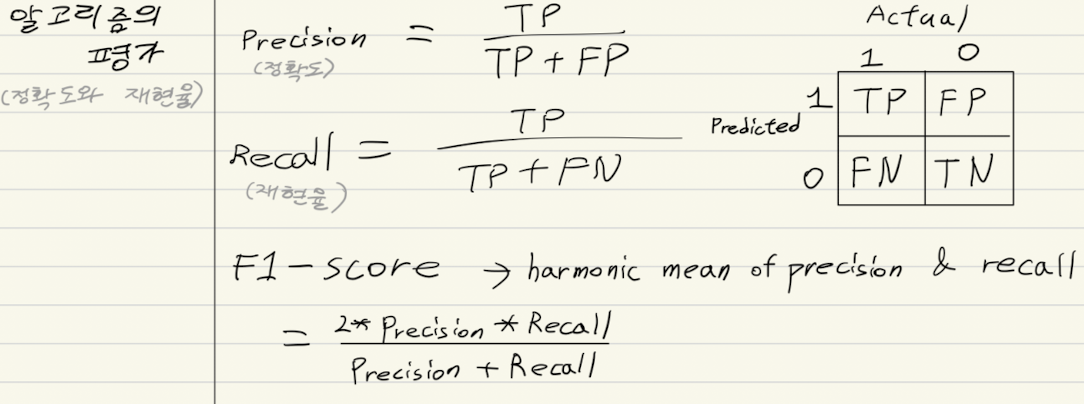 알고리즘의
평가
(정확도와 재현율)
Precision = TP / TP + FP
(정확도)
Recall = TP / TP + FN
(재현율)
Actual
1 0
Predicted 1 TP FP
0 FN TN
F1-score → harmonic mean of precision & recall
= 2* Precision * Recall
Precision + Recall